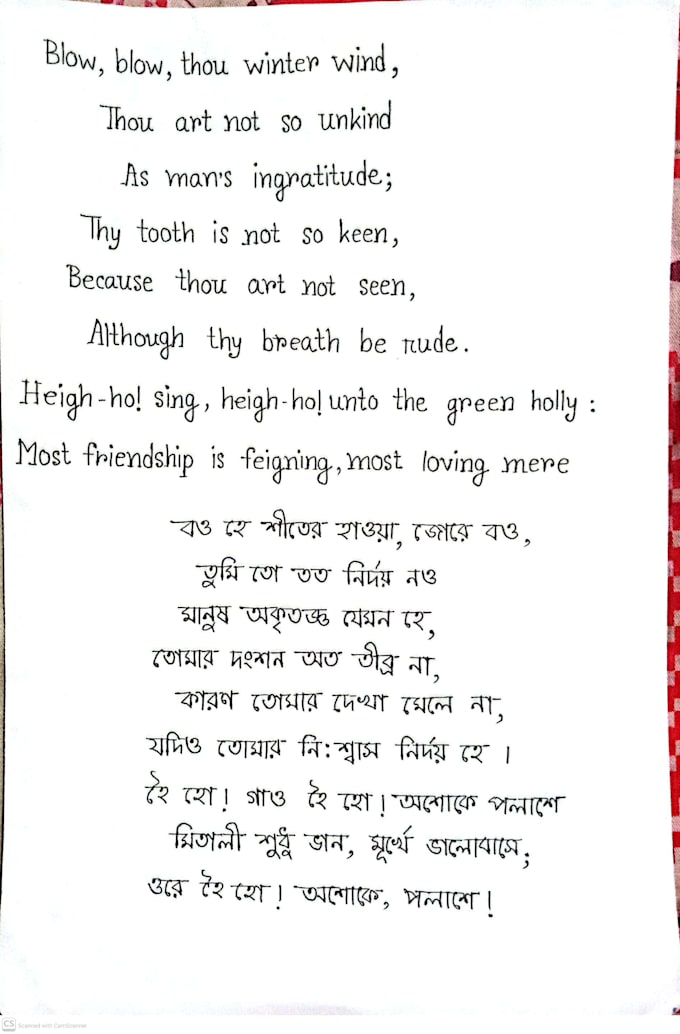 Blow, blow, thou winter wind,
Thou art not so unkind
As man's ingratitude;
Thy tooth is not so keen,
Because thou art not seen,
Although thy breath be rude.
Heigh-ho! sing, heigh-ho! unto the green holly:
Most friendship is feigning, most loving mere
বও হে শীতের হাওয়া, জোরে বও,
তুমি তো তত নির্দয় নও
মানুষ অকৃতজ্ঞ যেমন হে,
তোমার দংশন অত তীব্র না,
কারণ তোমার দেখা মেলে না,
যদিও তোমার নি:শ্বাস নির্দয় হে।
হৈ হো! গাও হৈ হো! অশোকে পলাশে
মিতালী শুধু ভান, মূর্খে ভালোবাসে;
ওরে হৈ হো! অশোকে, পলাশে!
CS Scanned with CamScanner